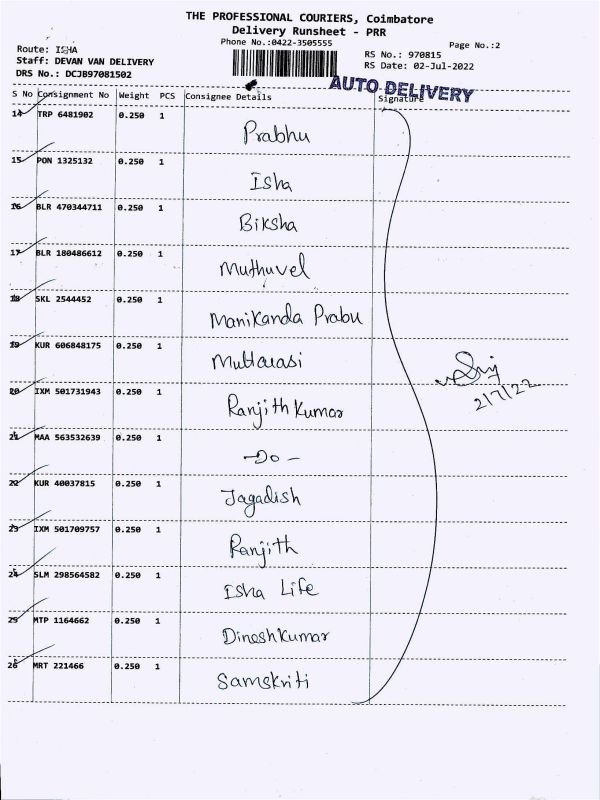 THE PROFESSIONAL COURIERS, Coimbatore
Delivery Runsheet - PRR
Phone No.:0422-3505555
Page No.:2
Route: ISHA
Staff: DEVAN VAN DELIVERY
DRS No.: DCJB97081502
RS No.: 970815
RS Date: 02-Jul-2022
AUTO DELIVERY
S No Consignment No Weight PCS Consignee Details Signature
14 TRP 6481902 0.250 1 Prabhu
15 PON 1325132 0.250 1 Isha
16 BLR 470344711 0.250 1 Biksha
17 BLR 180486612 0.250 1 Muthuvel
18 SKL 2544452 0.250 1 Manikanda Prabu
19 KUR 606848175 0.250 1 Muttarasi
20 IXM 501731943 0.250 1 Ranjith Kumar
21 MAA 563532639 0.250 1 -Do-
22 KUR 40037815 0.250 1 Jagadish
23 IXM 501709757 0.250 1 Ranjith
24 SLM 298564582 0.250 1 Isha Life
25 MTP 1164662 0.250 1 Dineshkumar
26 MRT 221466 0.250 1 Samskriti
2/7/22